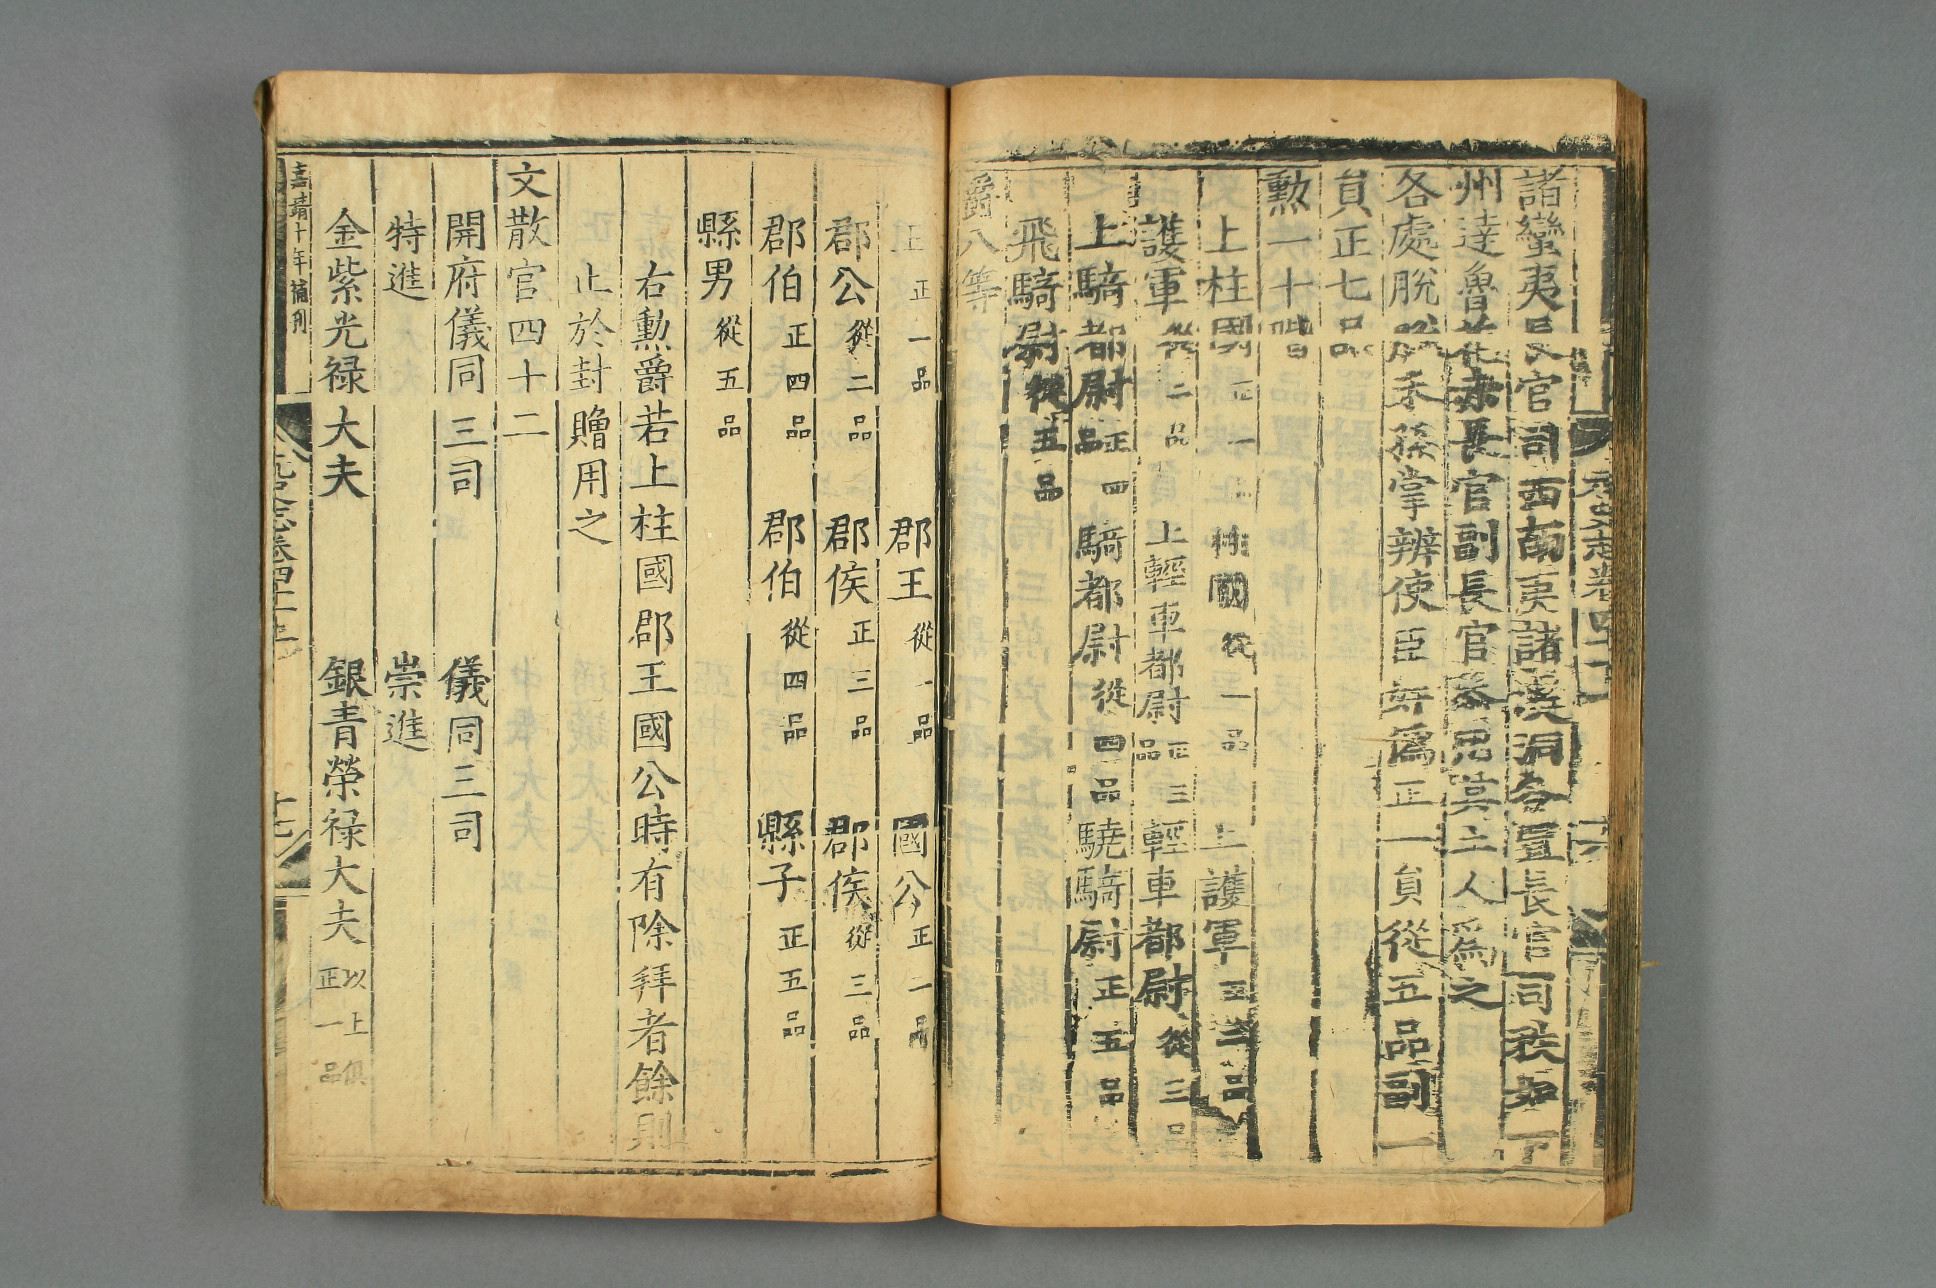 諸蠻夷長官司西南夷諸溪洞各置長官司秩如下
州達魯花赤長官副長官參用其土人爲之
各處脫脫禾孫掌辨使臣奸僞正一員從五品副一
員正七品
勲一十階
上柱國正一 柱國從一品 上護軍正二品
護軍從二品 上輕車都尉正三品 輕車都尉從三品
上騎都尉正四品 騎都尉從四品 驍騎尉正五品
飛騎尉從五品
爵八等
王正一品 郡王從一品 國公正二品
郡公從二品 郡侯正三品 郡侯從三品
郡伯正四品 郡伯從四品 縣子正五品
縣男從五品
右勲爵若上柱國郡王國公時有除拜者餘則
止於封贈用之
文散官四十二
開府儀同三司 儀同三司
特進 崇進
金紫光禄大夫 銀青榮禄大夫以上俱正一品
嘉靖十年補刊
元史志卷四十一上 十七